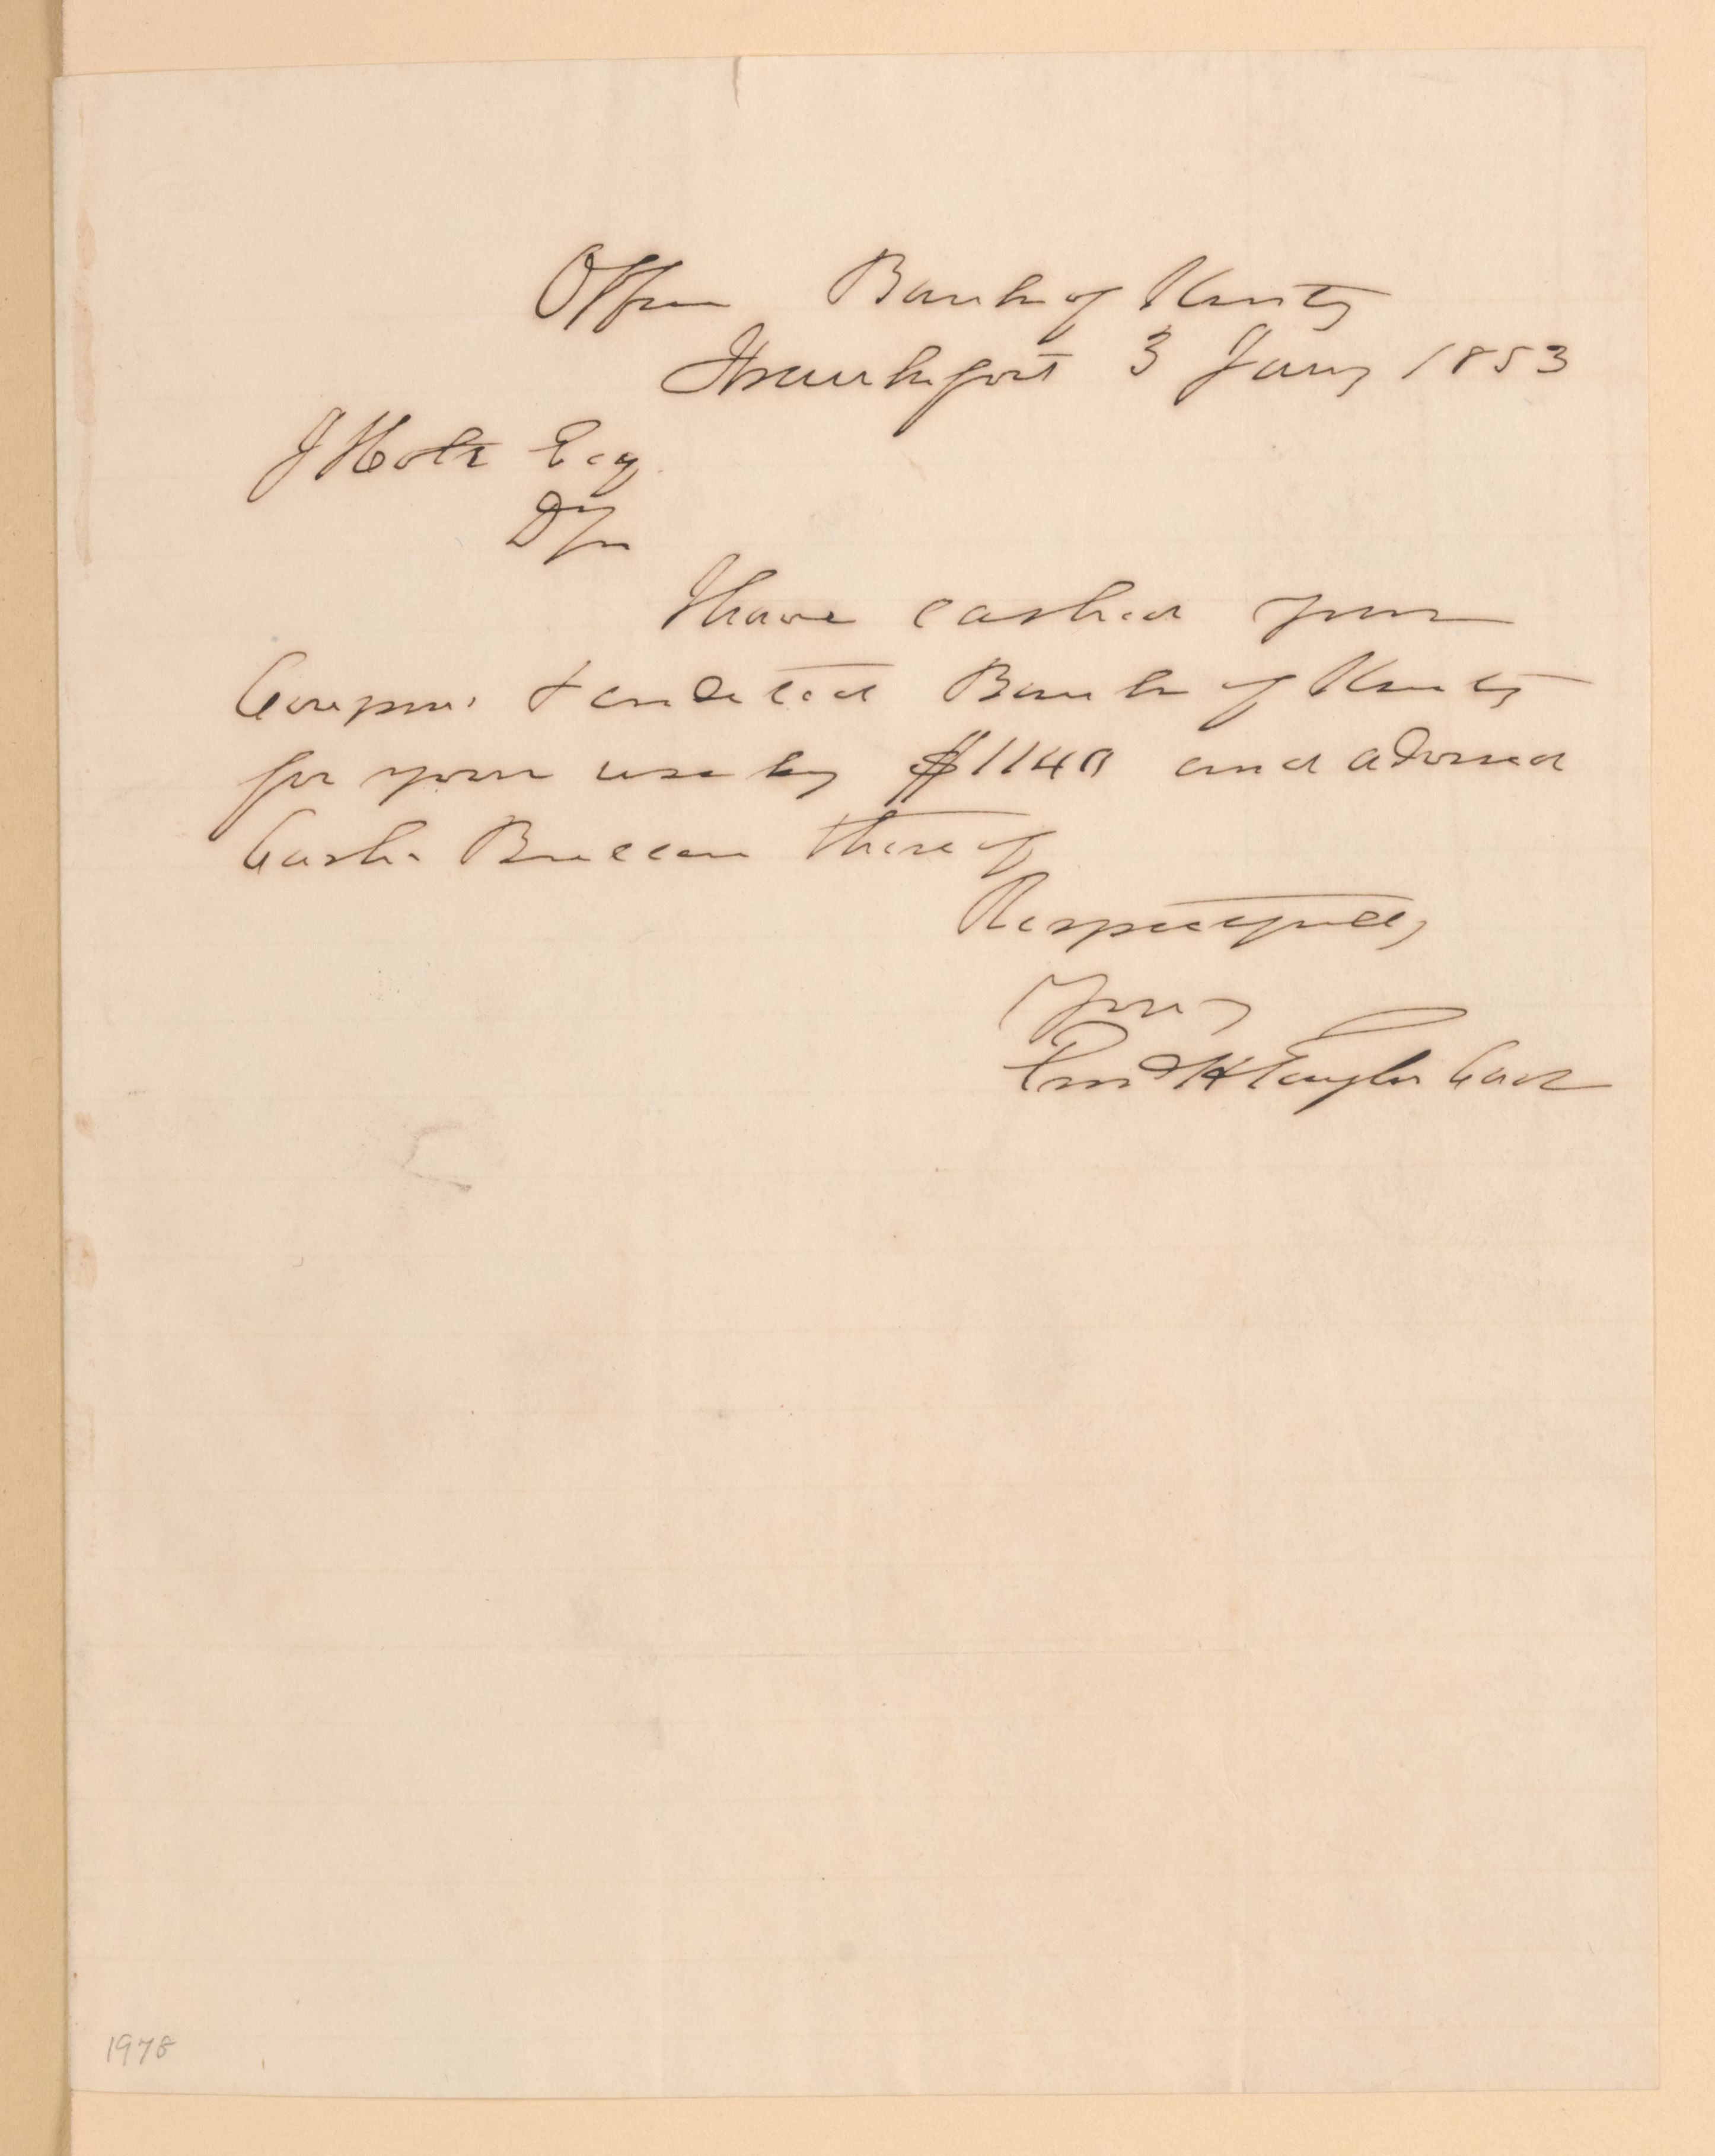 Office Bank of Kenty
Frankfort 3 Jany 1853
J Holt Esq
D Sir
I have cashed your
Coupons & credited Bank of Kenty
for your use by $1140 and advised
Cashr Bullen thereof
Respectfully
Yours
Edmd H Taylor Cash
1978